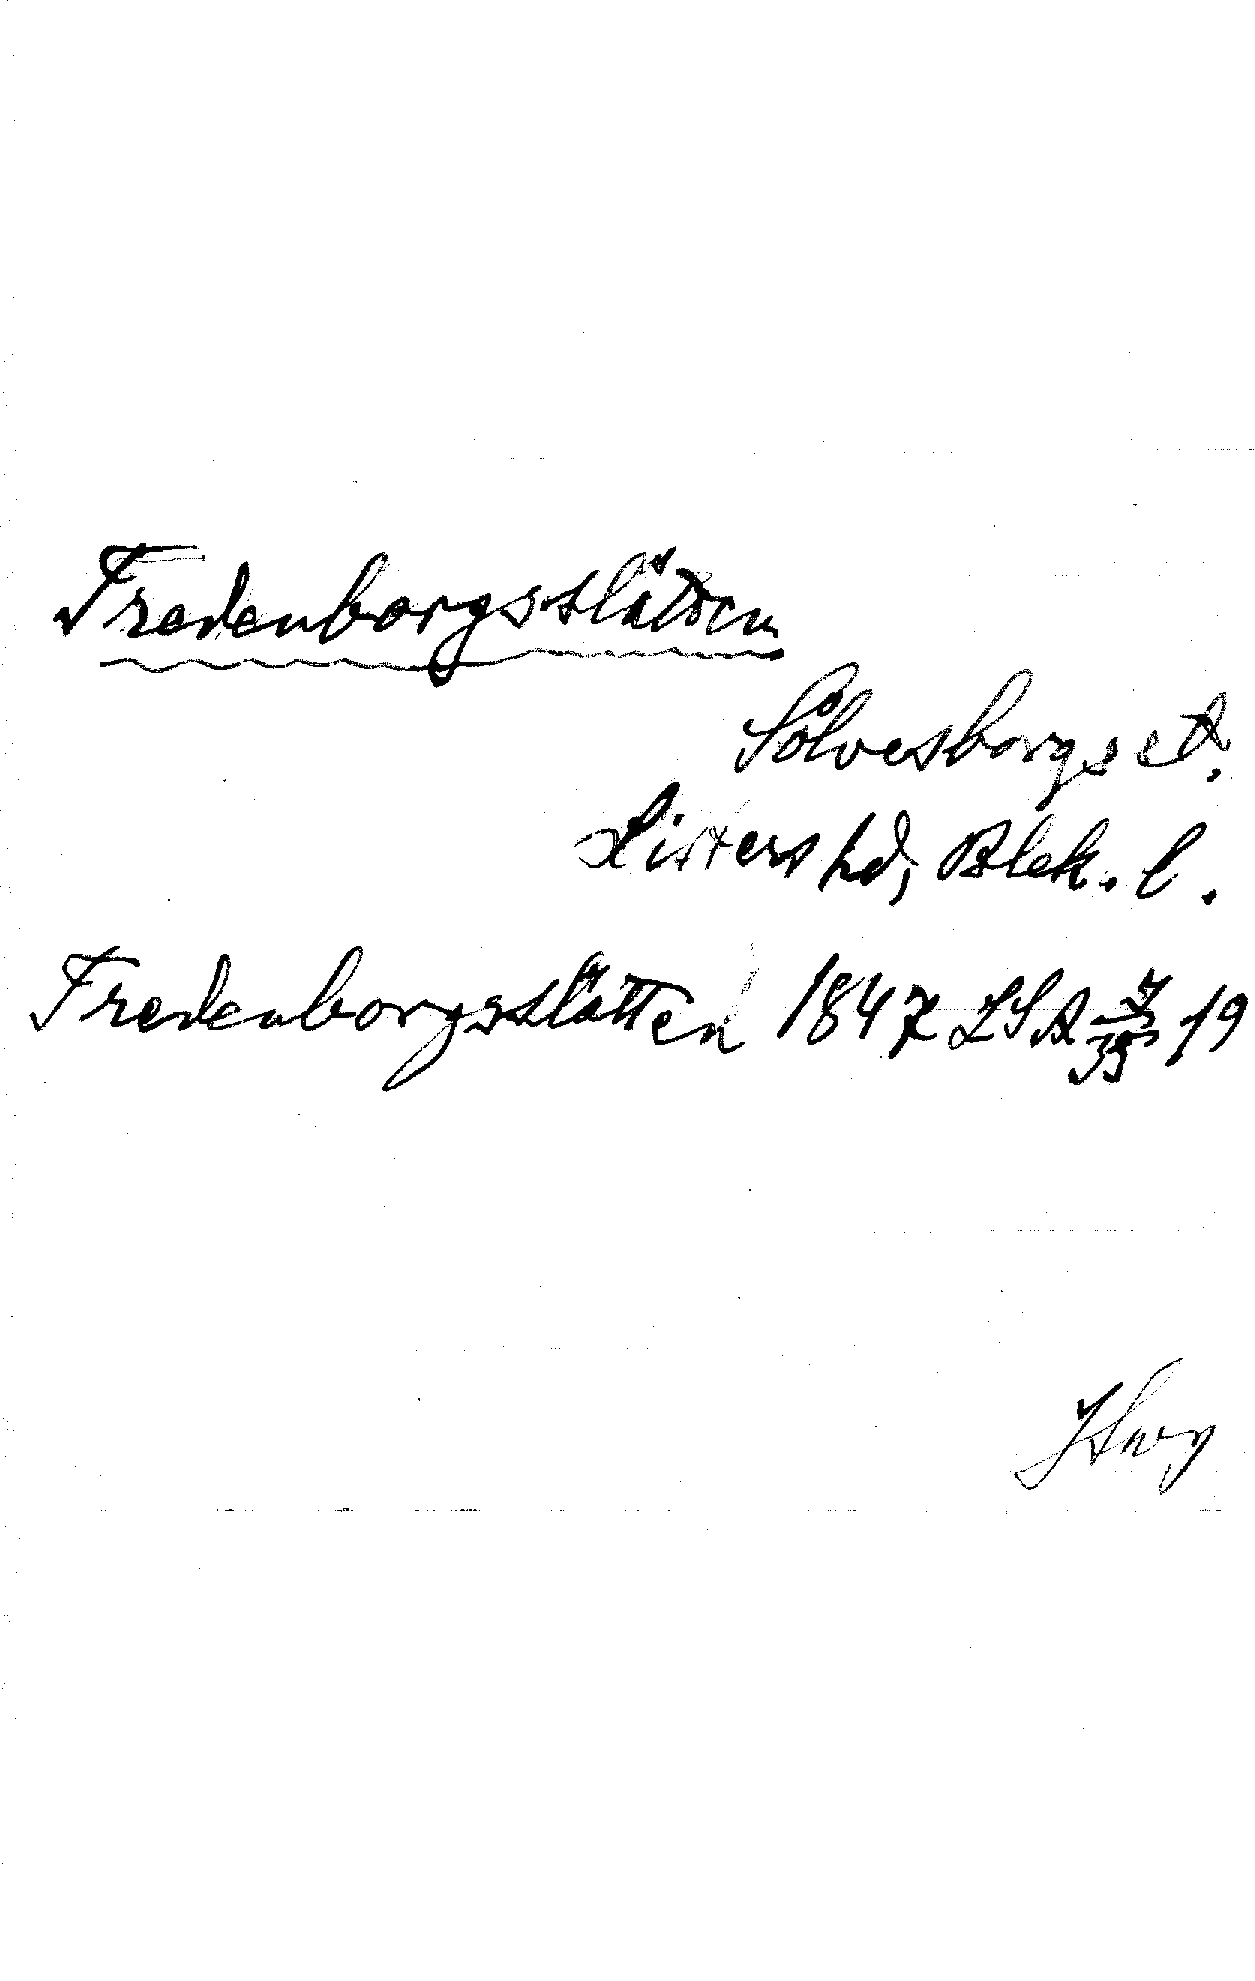 Fredenborgsslätten
Sölvesborgs st.
Listers hd, Blek. l.
Fredenborgsslätten 1847 LSA 19